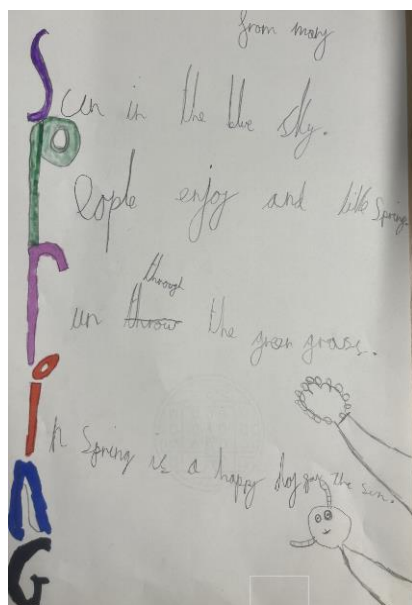 from mary
Sun in the blue sky.
People enjoy and like Spring.
run throw through the green grass.
in Spring is a happy the sun.
N
G